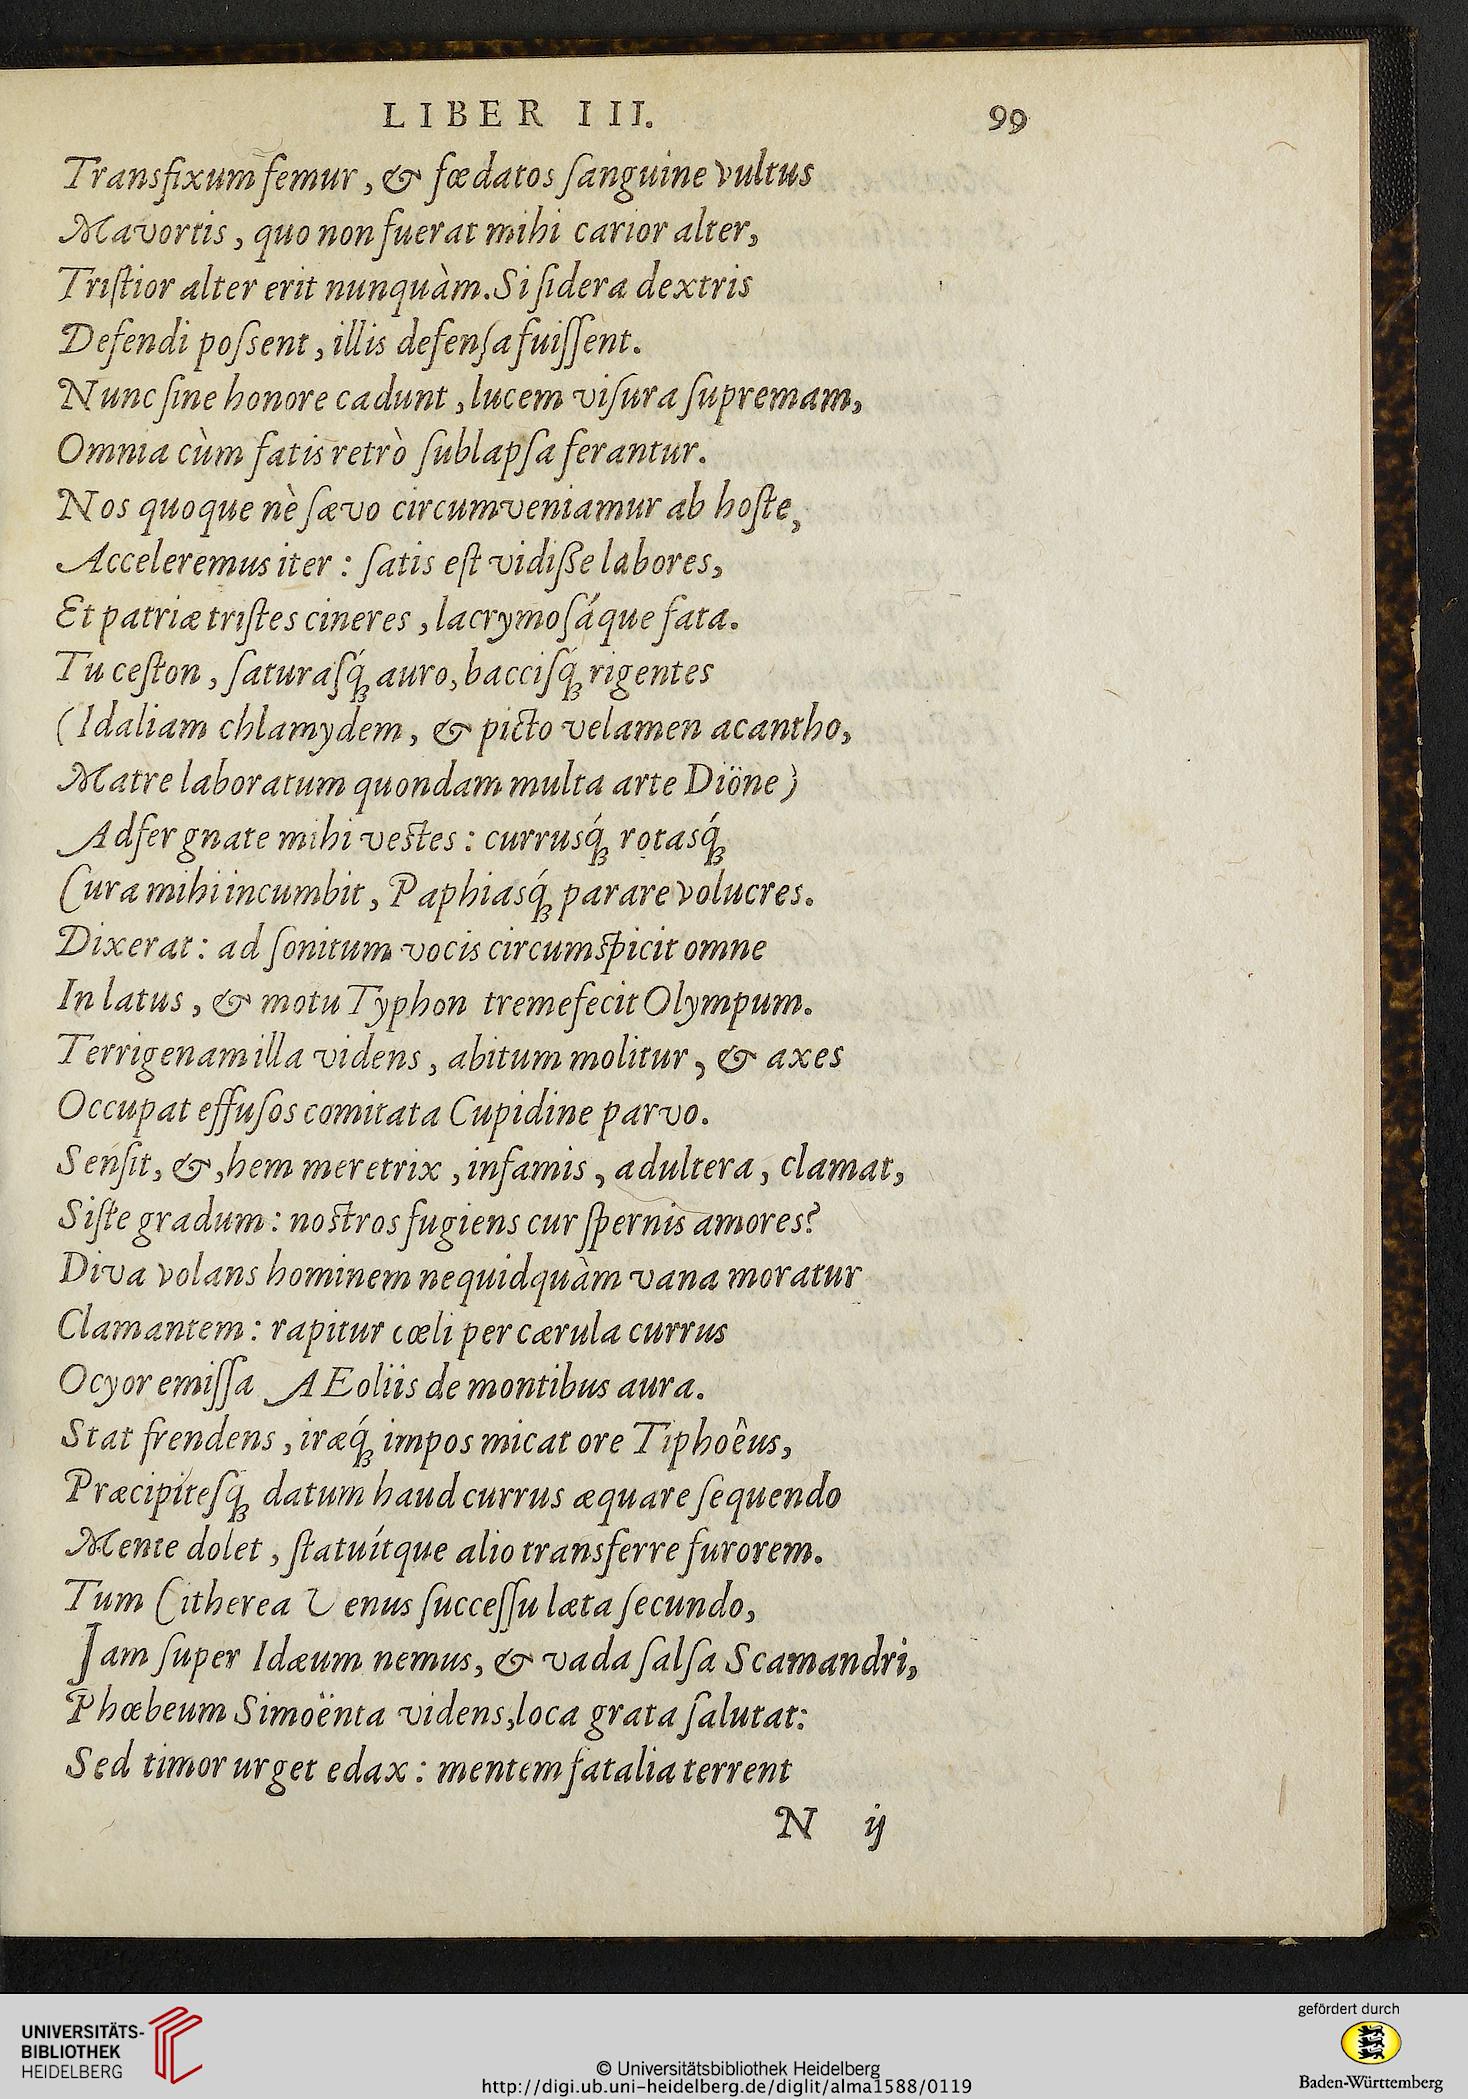 LIBER III. 99
Transfixum femur, & fœdatos ſanguine vultus
Mavortis, quo non fuerat mihi carior alter,
Triſtior alter erit nunquàm. Si ſidera dextris
Defendi poſsent, illis defenſa fuiſſent.
Nunc ſine honore cadunt, lucem viſura ſupremam,
Omnia cùm fatis retrò ſublapſa ferantur.
Nos quoque nè ſævo circumveniamur ab hoſte,
Acceleremus iter: ſatis eſt vidiße labores,
Et patriæ triſtes cineres, lacrymoſáque fata.
Tu ceſton, ſaturaſq́ꝫ auro, bacciſq́ꝫ rigentes
(Idaliam chlamydem, & picto velamen acantho,
Matre laboratum quondam multa arte Diöne)
Adfer gnate mihi vestes: currusq́ꝫ rotasq́ꝫ
Cura mihi incumbit, Paphiasq́ꝫ parare volucres.
Dixerat: ad ſonitum vocis circumspicit omne
In latus, & motu Typhon tremefecit Olympum.
Terrigenam illa videns, abitum molitur, & axes
Occupat effuſos comitata Cupidine parvo.
Senſit, &, hem meretrix, infamis, adultera, clamat,
Siſte gradum: nostros fugiens cur ſpernis amores?
Diva volans hominem nequidquàm vana moratur
Clamantem: rapitur cœli per cærula currus
Ocyor emiſſa AEoliis de montibus aura.
Stat frendens, iræq́ꝫ impos micat ore Tiphoêus,
Præcipiteſq́ꝫ datum haud currus æquare ſequendo
Mente dolet, ſtatuítque alio transferre furorem.
Tum Citherea Venus ſucceſſu læta ſecundo,
Jam ſuper Idæum nemus, & vada ſalſa Scamandri,
Phœbeum Simoënta videns, loca grata ſalutat:
Sed timor urget edax: mentem fatalia terrent
N ij
UNIVERSITÄTS-
BIBLIOTHEK
HEIDELBERG
© Universitätsbibliothek Heidelberg
http://digi.ub.uni-heidelberg.de/diglit/alma1588/0119
gefördert durch
Baden-Württemberg